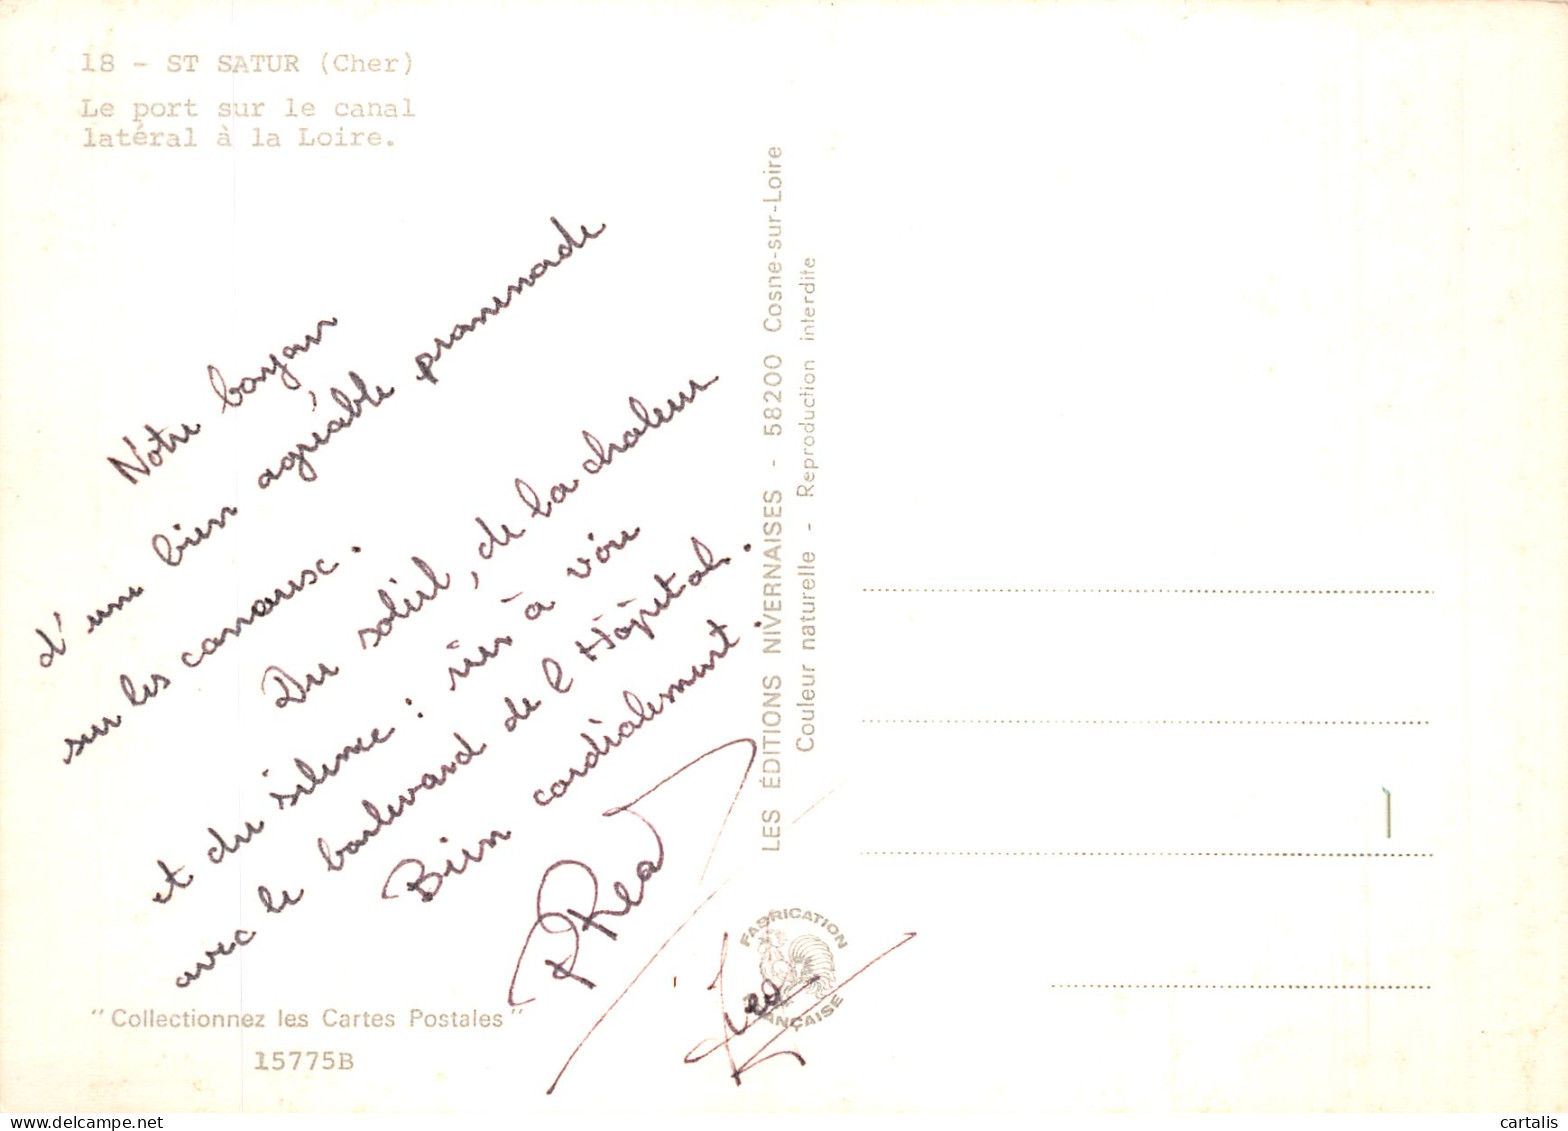 18 - ST SATUR (Cher)
Le port sur le canal
latéral à la Loire.
Notre bonjour
d'une bien agréable promenade
sur les canaux.
Du soleil, de la chaleur
et du silence : rien à voir
avec le boulevard de l'Hôpital.
Bien cordialement.
"Collectionnez les Cartes Postales"
15775B
LES ÉDITIONS NIVERNAISES - 58200 Cosne-sur-Loire
Couleur naturelle - Reproduction interdite
FABRICATION
FRANÇAISE
cartalis